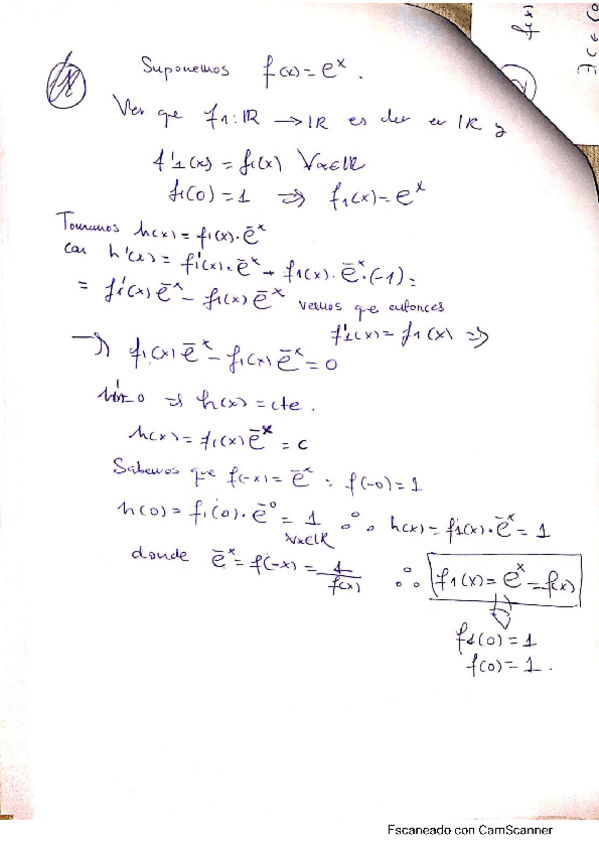 f(x)
∃ c ∈
Suponemos f(x) = e^x.
Ver que f1: ℝ → ℝ es der en ℝ y
f'1(x) = f1(x) ∀x∈ℝ
f1(0) = 1 ⇒ f1(x) = e^x
Tomamos h(x) = f1(x) · e^-x
con h'(x) = f1'(x) · e^-x + f1(x) · e^-x · (-1) =
= f1'(x) e^-x - f1(x) e^-x vemos que entonces
f'1(x) = f1(x) ⇒
→ f1(x) e^-x - f1(x) e^-x = 0
⇒ h(x) = cte.
h(x) = f1(x) e^-x = c
Sabemos que f(-x) = e^-x = f(-0) = 1
h(0) = f1(0) · e^-0 = 1 ∴ h(x) = f1(x) · e^-x = 1
∀x∈ℝ
donde e^-x = f(-x) = 1/f(x) ∴ f1(x) = e^x = f(x)
f1(0) = 1
f(0) = 1.
Escaneado con CamScanner